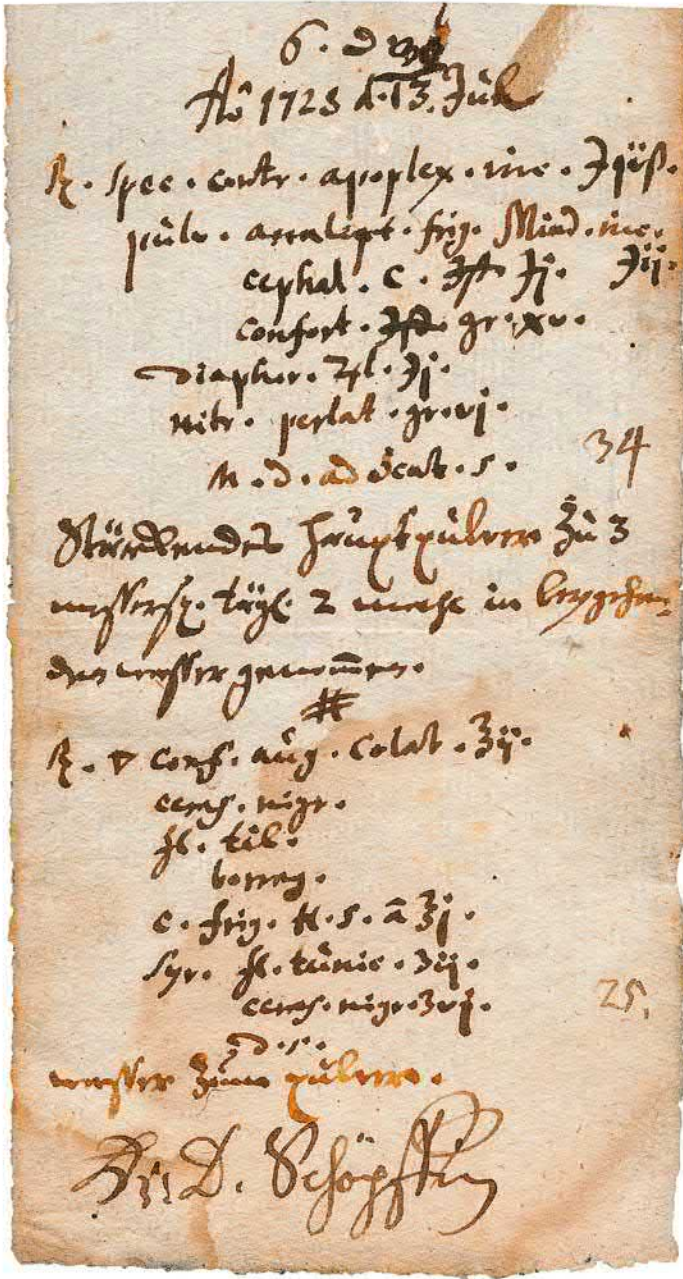 6. D
Aô 1728 d. 13. Jul
℞. Spec. contr. apoplex. ℈iiß.
pulv. analept. frig. Mind.
cephal. C. ℈j. ℈ij.
confort. gr. xv.
diaphor. ♃l. ℈j.
nitr. perlat. gr. vj.
M. D. ad scat. S. 34
Stärckendes Hauptpulver zu 3
messersp. tägl. 2 mahl in beygehen-
den wasser genom̄en.
#
℞. ▽ conf. aug. Colat. ℥ij.
ceras. nigr.
fl. til.
borrag.
C. frig. H. S. ā ℥j.
Syr. fl. tunic. ʒij.
ceras. nigr. ʒvj. 25.
D. S.
wasser zum pulver.
D. Schöpffer